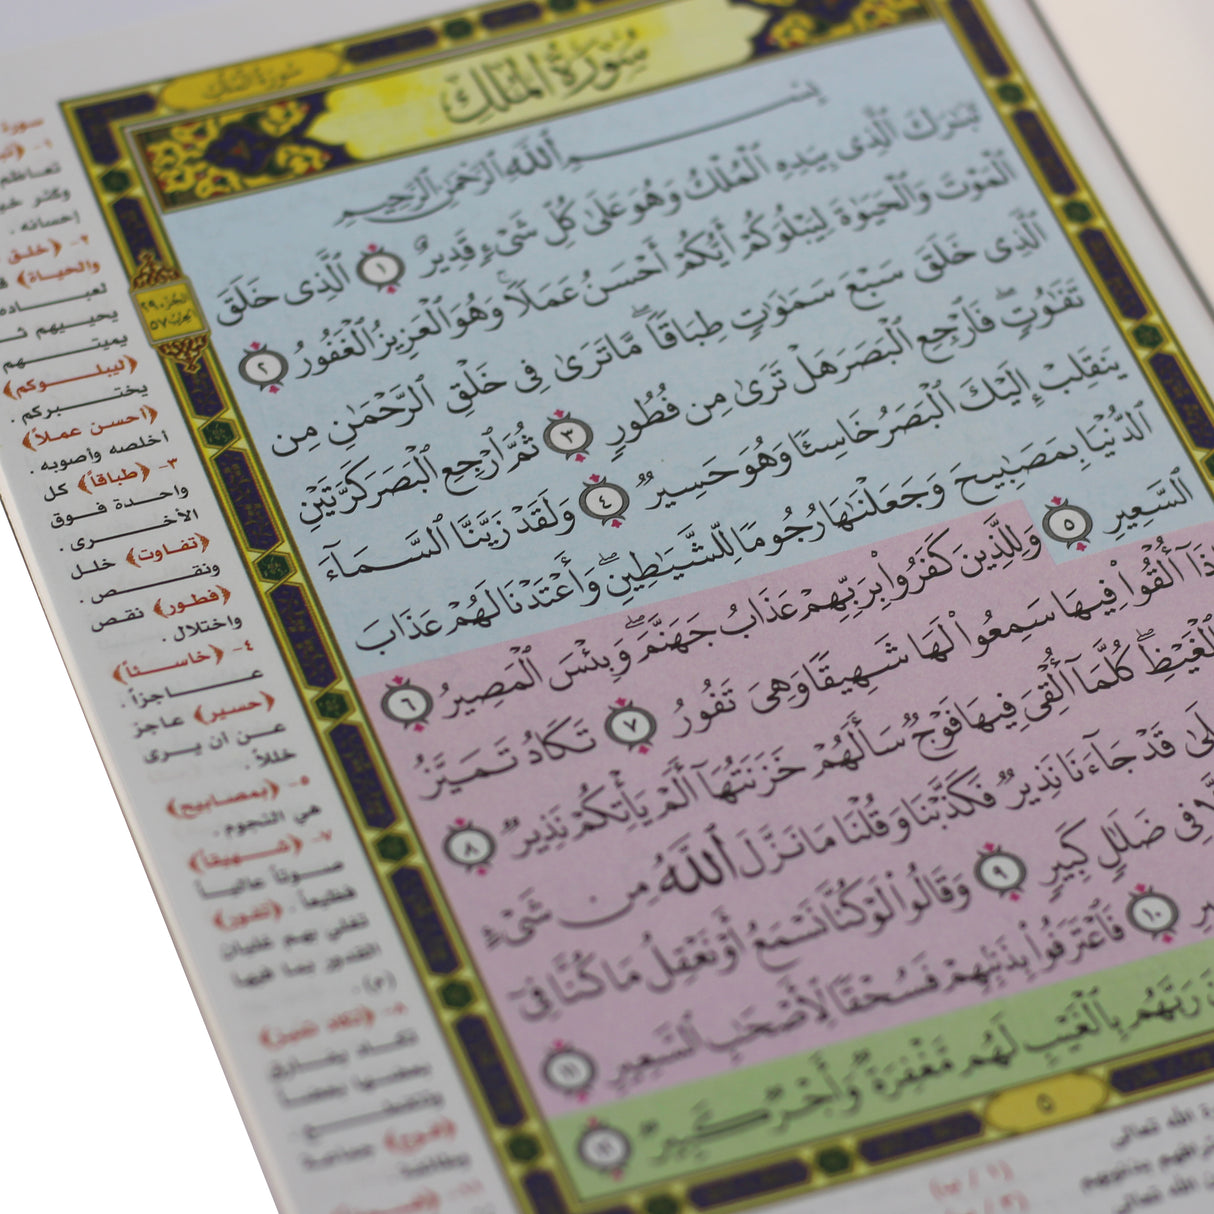 سُورَةُ المُلْكِ
سُورَةُ المُلْكِ
بِسْمِ ٱللَّهِ ٱلرَّحْمَٰنِ ٱلرَّحِيمِ
تَبَٰرَكَ ٱلَّذِى بِيَدِهِ ٱلْمُلْكُ وَهُوَ عَلَىٰ كُلِّ شَىْءٍ قَدِيرٌ ١ ٱلَّذِى خَلَقَ
ٱلْمَوْتَ وَٱلْحَيَوٰةَ لِيَبْلُوَكُمْ أَيُّكُمْ أَحْسَنُ عَمَلًا ۚ وَهُوَ ٱلْعَزِيزُ ٱلْغَفُورُ ٢
ٱلَّذِى خَلَقَ سَبْعَ سَمَٰوَٰتٍ طِبَاقًا ۖ مَّا تَرَىٰ فِى خَلْقِ ٱلرَّحْمَٰنِ مِن
تَفَٰوُتٍ ۖ فَٱرْجِعِ ٱلْبَصَرَ هَلْ تَرَىٰ مِن فُطُورٍ ٣ ثُمَّ ٱرْجِعِ ٱلْبَصَرَ كَرَّتَيْنِ
يَنقَلِبْ إِلَيْكَ ٱلْبَصَرُ خَاسِئًا وَهُوَ حَسِيرٌ ٤ وَلَقَدْ زَيَّنَّا ٱلسَّمَآءَ
ٱلدُّنْيَا بِمَصَٰبِيحَ وَجَعَلْنَٰهَا رُجُومًا لِّلشَّيَٰطِينِ ۖ وَأَعْتَدْنَا لَهُمْ عَذَابَ
ٱلسَّعِيرِ ٥ وَلِلَّذِينَ كَفَرُوا۟ بِرَبِّهِمْ عَذَابُ جَهَنَّمَ ۖ وَبِئْسَ ٱلْمَصِيرُ ٦
أُلْقُوا۟ فِيهَا سَمِعُوا۟ لَهَا شَهِيقًا وَهِىَ تَفُورُ ٧ تَكَادُ تَمَيَّزُ
ٱلْغَيْظِ ۖ كُلَّمَآ أُلْقِىَ فِيهَا فَوْجٌ سَأَلَهُمْ خَزَنَتُهَآ أَلَمْ يَأْتِكُمْ نَذِيرٌ ٨
قَدْ جَآءَنَا نَذِيرٌ فَكَذَّبْنَا وَقُلْنَا مَا نَزَّلَ ٱللَّهُ مِن شَىْءٍ
فِى ضَلَٰلٍ كَبِيرٍ ٩ وَقَالُوا۟ لَوْ كُنَّا نَسْمَعُ أَوْ نَعْقِلُ مَا كُنَّا فِىٓ
١٠ فَٱعْتَرَفُوا۟ بِذَنۢبِهِمْ فَسُحْقًا لِّأَصْحَٰبِ ٱلسَّعِيرِ ١١
رَبَّهُم بِٱلْغَيْبِ لَهُم مَّغْفِرَةٌ وَأَجْرٌ كَبِيرٌ ١٢
٥
سورة
١-
تعاظم
وكثر
إحسانه .
٢- ﴿خلق
والحياة﴾
يحييهم
يميتهم
﴿ليبلوكم﴾
يختبركم .
﴿أحسن عملاً﴾
أخلصه وأصوبه .
٣- ﴿طباقاً﴾ كل
واحدة فوق
الأخرى .
﴿تفاوت﴾ خلل
ونقص .
﴿فطور﴾ نقص
واختلال .
٤- ﴿خاسئاً﴾
عاجزاً .
﴿حسير﴾ عاجز
عن أن يرى
خللاً .
٥- ﴿بمصابيح﴾
هي النجوم .
٧- ﴿شهيقاً﴾
صوتاً عالياً
فظيعاً . ﴿تفور﴾
تغلي بهم غليان
القدور بما فيها
(م) .
٨- ﴿تكاد تميز﴾
تكاد يفارق
بعضها بعضاً
﴿فوج﴾ جماعة
الله تعالى
بذنوبهم
الله تعالى